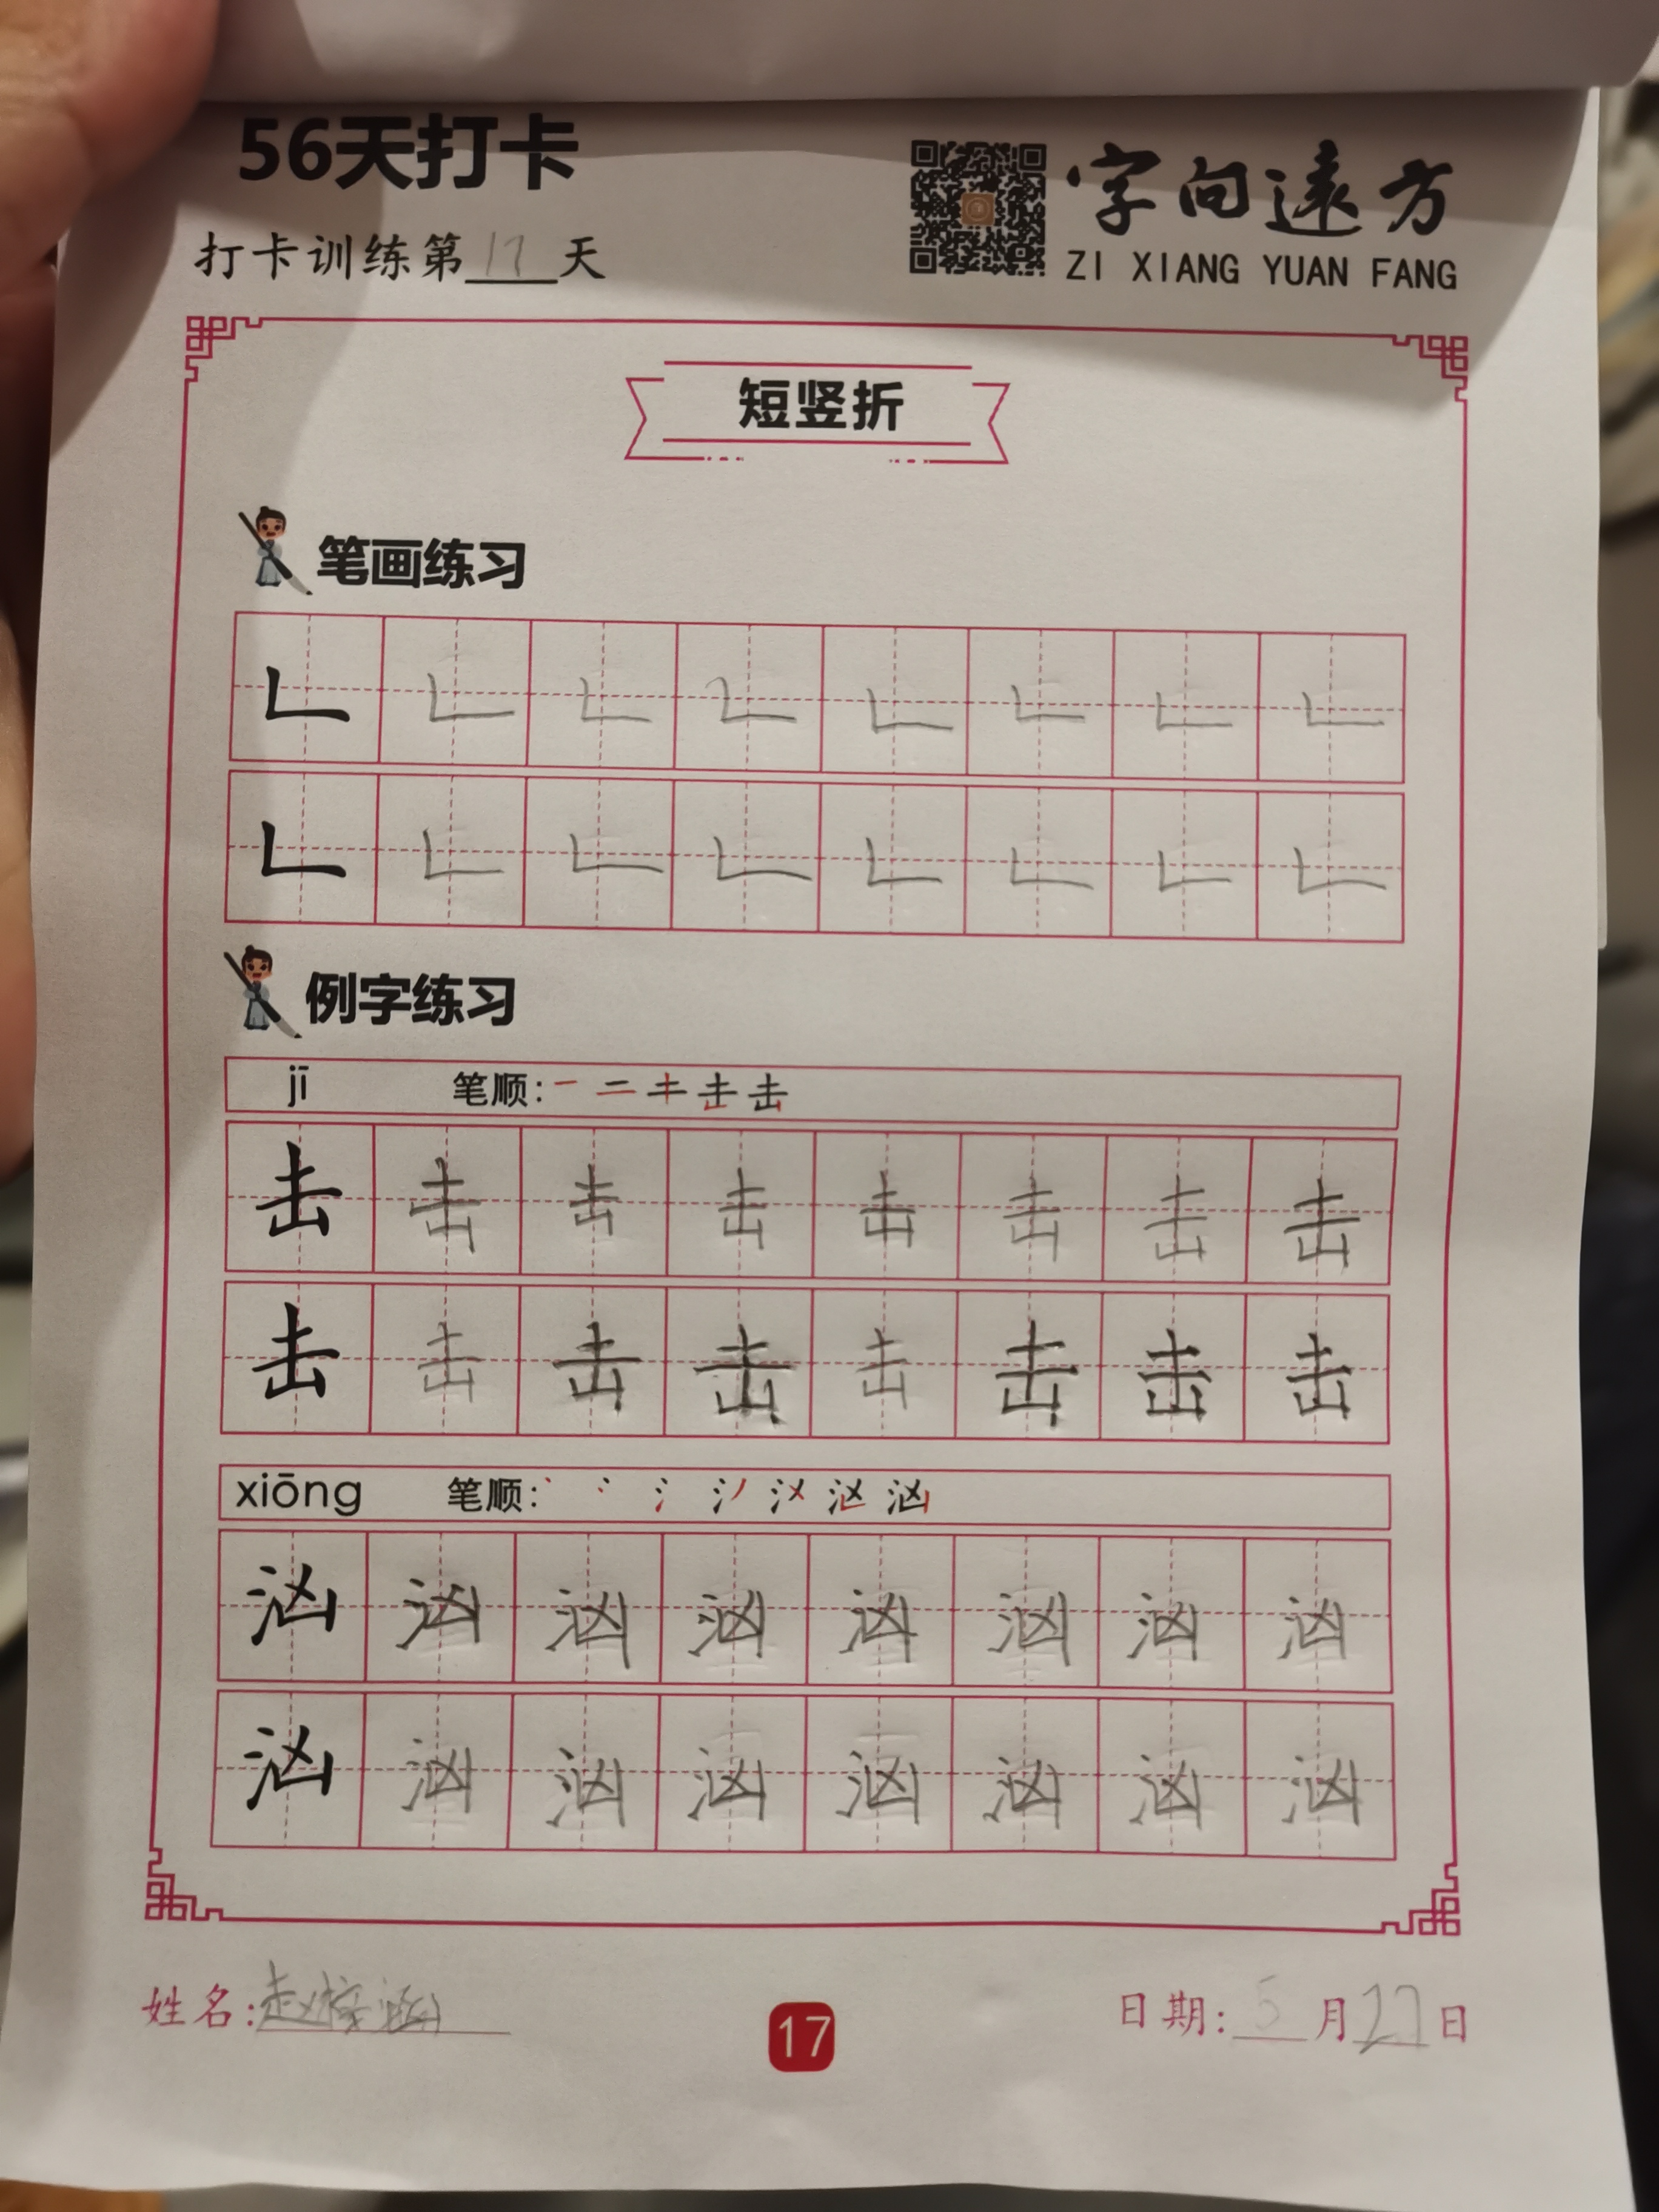 56天打卡
字向遠方
打卡训练第17天
ZI XIANG YUAN FANG
短竖折
笔画练习
𠃊 𠃊 𠃊 𠃊 𠃊 𠃊 𠃊 𠃊
𠃊 𠃊 𠃊 𠃊 𠃊 𠃊 𠃊 𠃊
例字练习
jī 笔顺:
击 击 击 击 击 击 击 击
击 击 击 击 击 击 击 击
xiōng 笔顺:
汹 汹 汹 汹 汹 汹 汹 汹
汹 汹 汹 汹 汹 汹 汹 汹
姓名:赵 涵
17
日期:5月27日